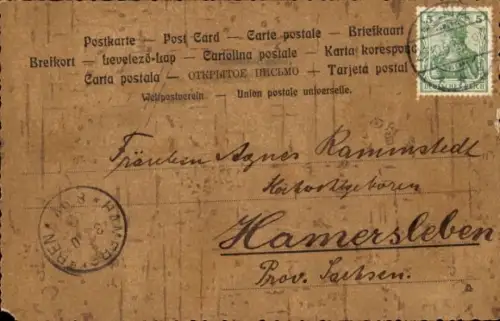 Postkarte — Post Card — Carte postale — Briefkaart
Brefkort — Levelező-Lap — Cartolina postale — Karta korespond
Carta postala — ОТКРЫТОЕ ПИСЬМО — Tarjeta postal
Weltpostverein — Union postale universelle.
5 5
Fräulein Agnes Rammstedt
Hamersleben
Prov. Sachsen.
HAMERS
BEN